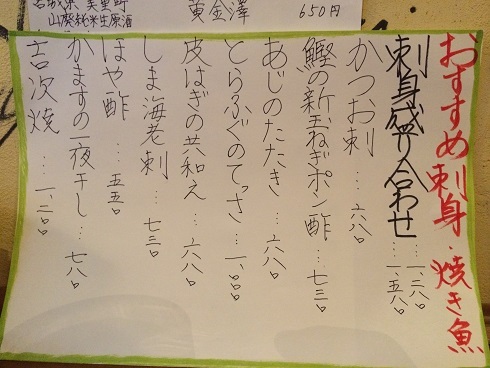 宮城県 美里町
山廃純米生原酒
黄金澤
650円
おすすめ刺身・焼き魚
刺身盛り合わせ…一、二八〇
…一、五八〇
かつお刺…六八〇
鰹の新玉ねぎポン酢…七三〇
あじのたたき…六八〇
とらふぐのてっさ…一、〇〇〇
皮はぎの共和え…六八〇
しま海老刺…七三〇
ほや酢…五五〇
かますの一夜干し…七八〇
吉次焼…一、二〇〇